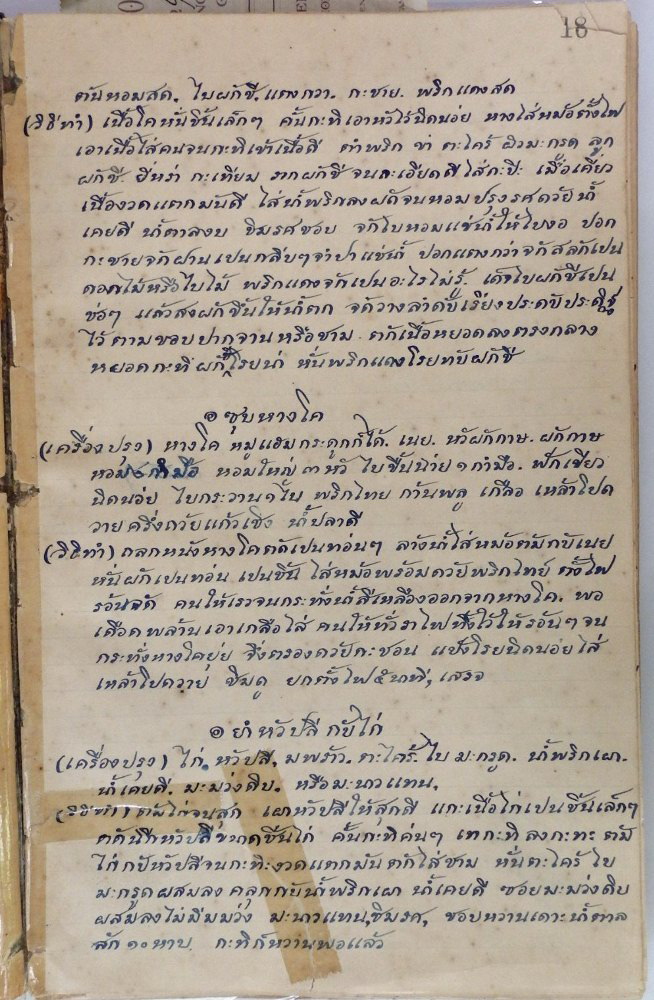 18
ต้นหอมสด. ใบผักชี. แตงกวา. กะชาย. พริกแดงสด
(วิธีทำ) เนื้อโคหั่นชิ้นเล็กๆ คั้นกะทิเอาหัวไว้นิดน่อย หางใส่หม้อตั้งไฟ
เอาเนื้อใส่คนจนกะทิเข้าเนื้อดี ตำพริก ข่า ตะไคร้ ผิวมะกรูด ลูก
ผักชี ยี่หร่า กะเทียม รากผักชี จนละเอียดดีใส่กะปิ เมื่อเคี่ยว
เนื้องวดแตกมันดี ใส่น้ำพริกลงผัดจนหอม ปรุงรศด้วยน้ำ
เคยดี น้ำตาลงบ ชิมรศชอบ จักใบหอมแช่น้ำให้ใบงอ ปอก
กะชายจักผ่านเปนกลีบๆจำปาแช่น้ำ ปอกแตงกว่าจักสลักเปน
ดอกไม้หรือใบไม้ พริกแดงจักเปนอะไรไม่รู้. เด็ดใบผักชีเปน
ช่อๆ แล้วสงผักขึ้นให้น้ำตก จัดวางลำดับเรียงประดับประดิฐ
ไว้ตามขอบปากจานหรือชาม ตักเนื้อหยอดลงตรงกลาง
หยอดกะทิ ผักชีโรยน่า หั่นพริกแดงโรยทับผักชี
๏ ซุบหางโค
(เครื่องปรุง) หางโค หมูแฮมกระดูกก็ได้. เนย. หัวผักกาษ. ผักกาษ
หอม ๖ กำมือ หอมใหญ่ ๓ หัว ใบขึ้นน่าย ๑ กำมือ. ฟักเขียว
นิดน่อย ใบกระวาน ๑ ใบ พริกไทย ก้านพลู เกลือ เหล้าโปด
วายครึ่งถ้วยแก้วเชิง น้ำปลาดี
(วิธีทำ) ถลกหนังหางโคตัดเปนท่อนๆ ล้างน้ำใส่หม้อต้มกับเนย
หั่นผักเปนท่อน เปนชิ้น ใส่หม้อพร้อมด้วยพริกไทย ตั้งไฟ
ร้อนจัด คนให้เรวจนกระทั่งน้ำสีเหลืองออกจากหางโค. พอ
เดือดพล้านเอาเกลือใส่ คนให้ทั่วราไฟทิ้งไว้ให้ร้อนๆ จน
กระทั่งหางโคยุ่ย จึ่งตรองด้วยกะชอน แป้งโรยนิดน่อยใส่
เหล้าโปดวาย ชิมดู ยกตั้งไฟ ๕ นาที, เสรจ
๏ ยำหัวปลี กับไก่
(เครื่องปรุง) ไก่. หัวปลี. มพร้าว. ตะไคร้. ใบมะกรูด. น้ำพริกเผา.
น้ำเคยดี. มะม่วงดิบ. หรือมะนาวแทน.
(วิธีทำ) ต้มไก่จนสุก เผาหัวปลีให้สุกดี แกะเนื้อไก่เปนชิ้นเล็กๆ
ตักฉีกหัวปลีขนาดชิ้นไก่ คั้นกะทิคนๆ เทกะทิลงกะทะ ต้ม
ไก่กับหัวปลีจนกะทิงวดแตกมันตักใส่ชาม หั่นตะไคร้ ใบ
มะกรูดผสมลง คลุกกับน้ำพริกเผา น้ำเคยดี ซอยมะม่วงดิบ
ผสมลงไม่มีมะม่วง มะนาวแทน, ชิมรศ, ชอบหวานเดาะน้ำตาล
สัก ๑๐ หาบ กะทิก็หวานพอแล้ว